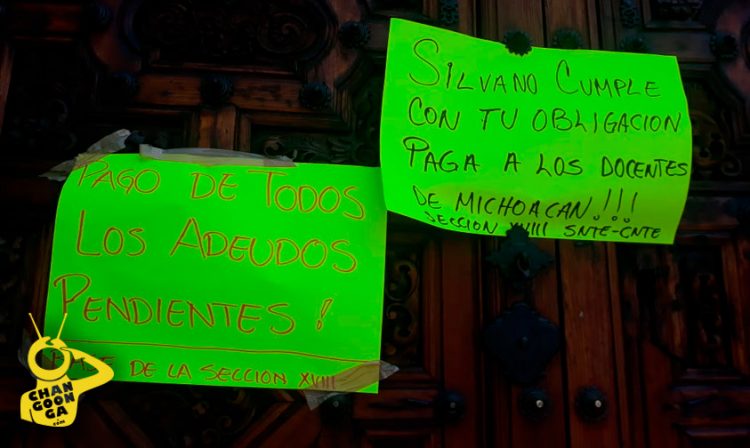 PAGO DE TODOS
LOS ADEUDOS
PENDIENTES!
BASE DE LA SECCION XVIII
SILVANO CUMPLE
CON TU OBLIGACION
PAGA A LOS DOCENTES
DE MICHOACAN!!!
SECCION XVIII SNTE-CNTE
CHAN
GOON
GA
.COM